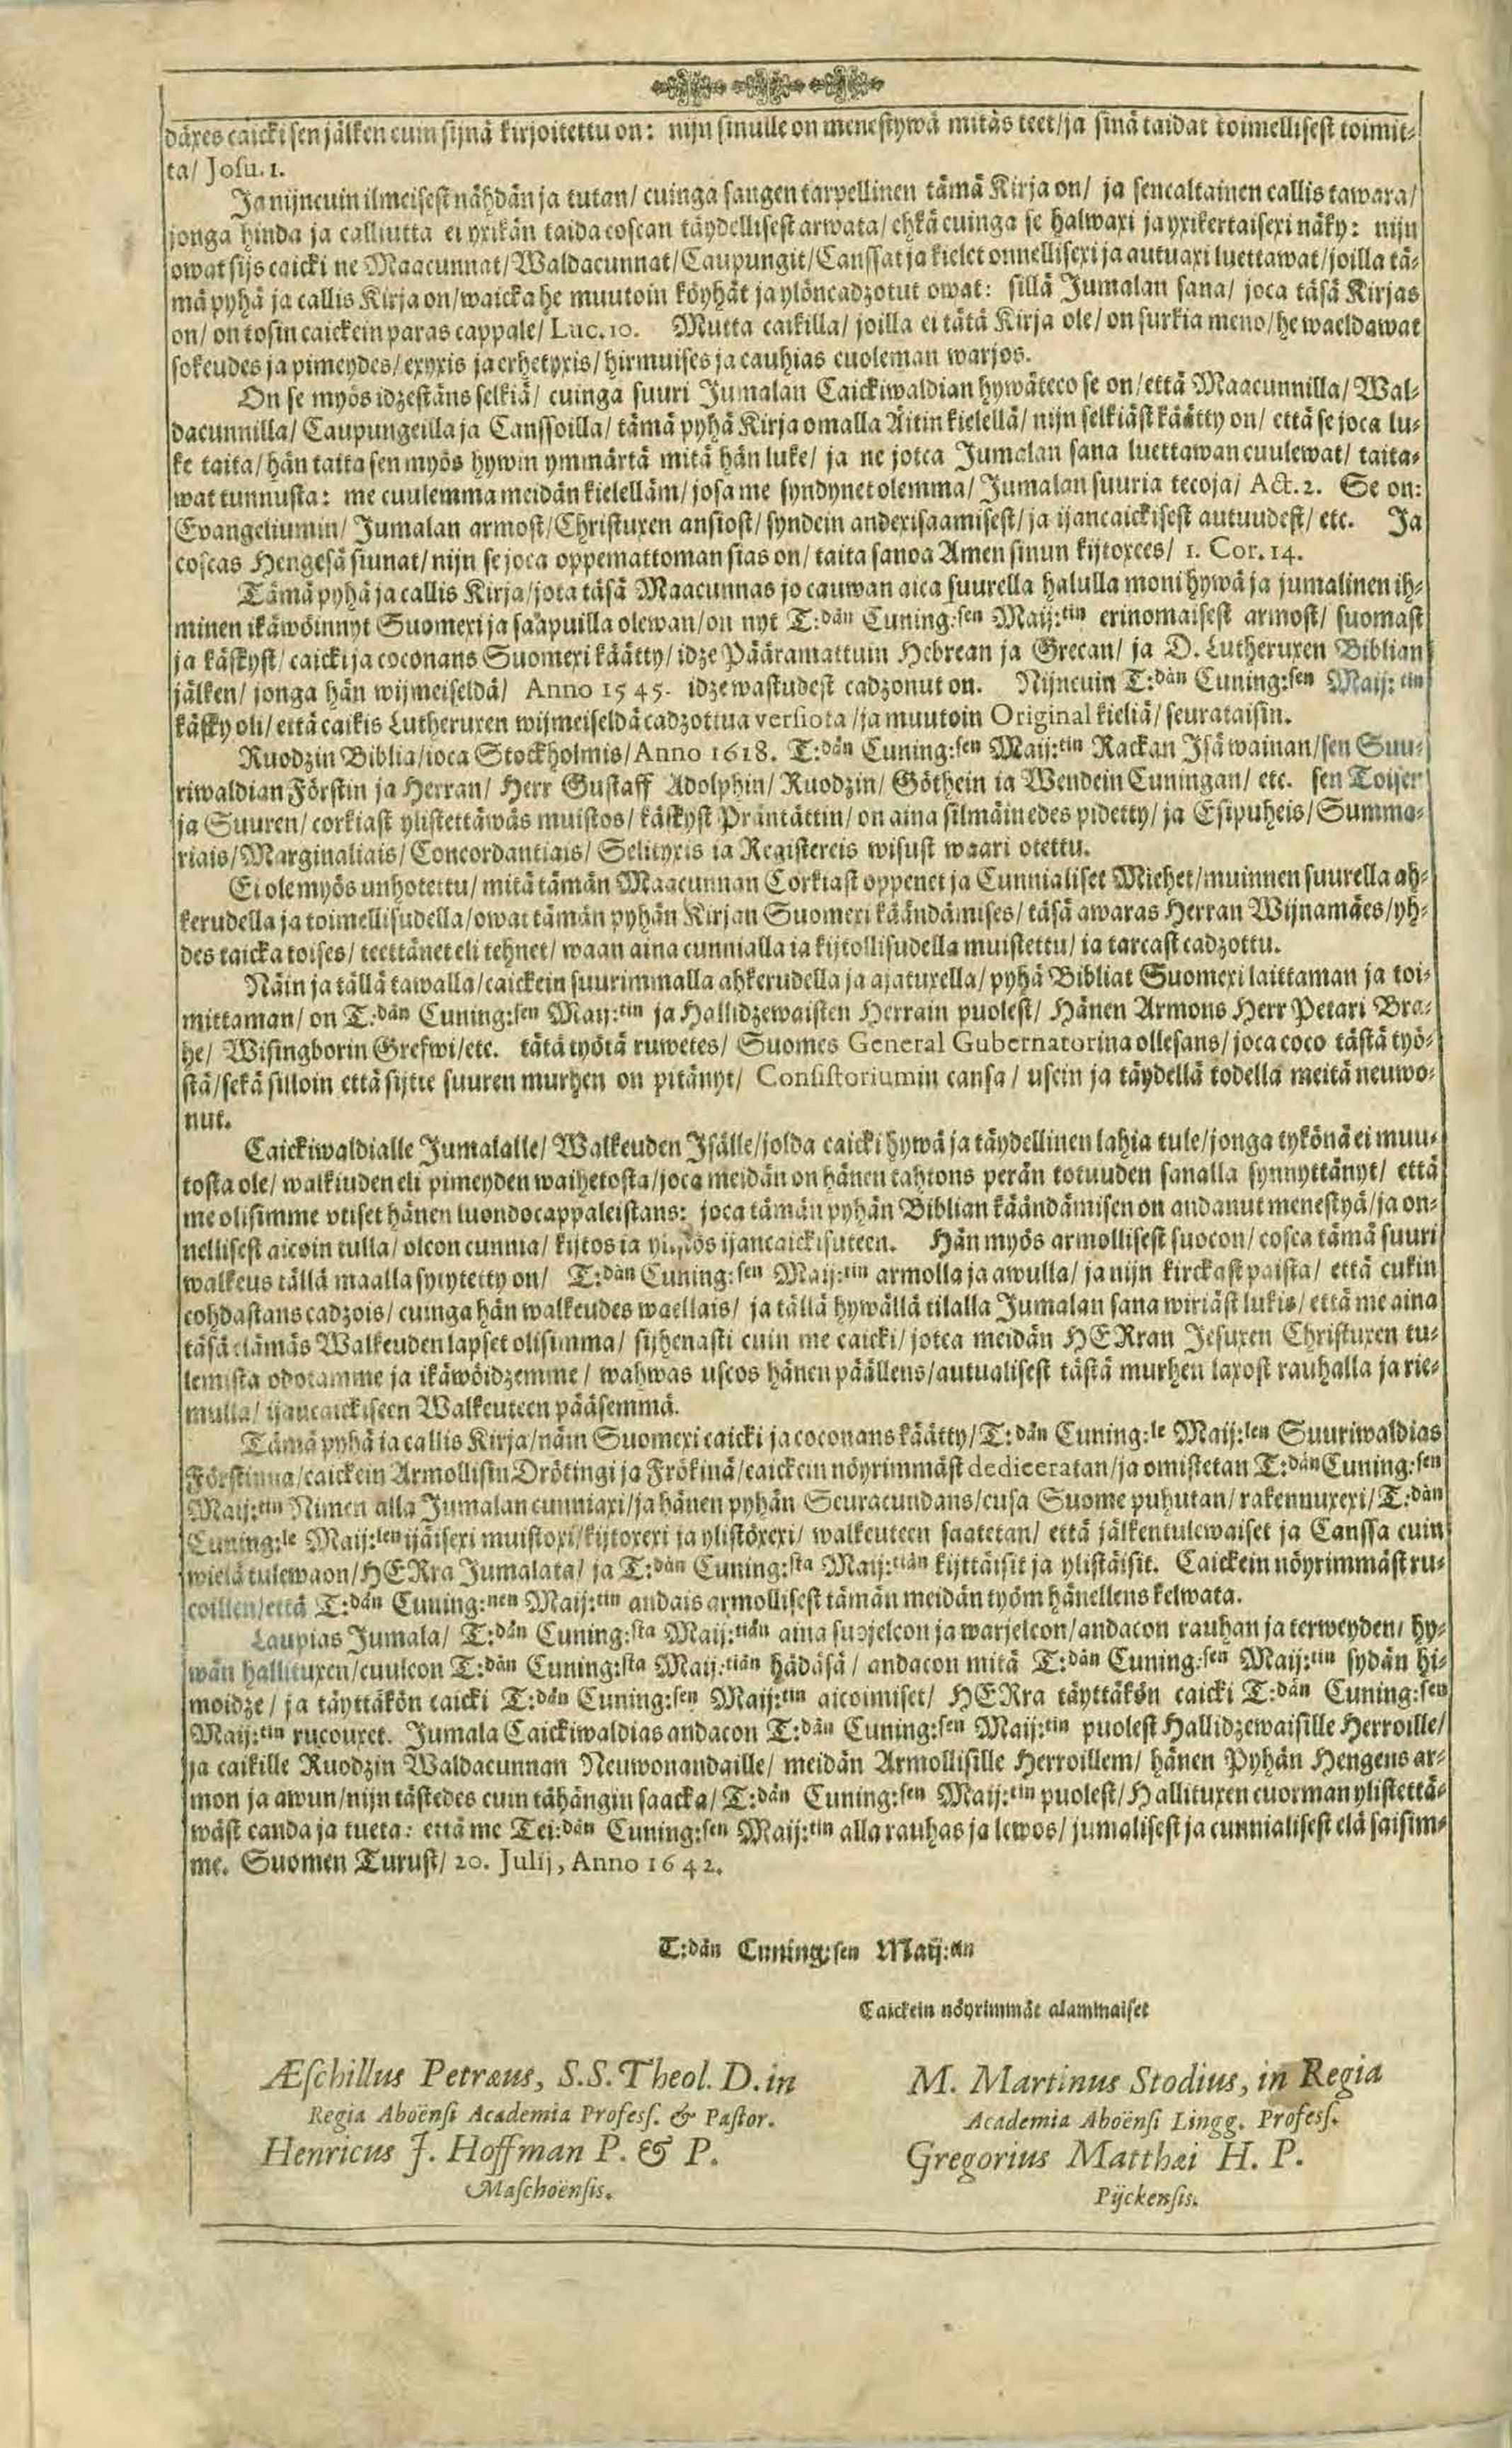 däxes caicki sen jälken cuin sijnä kirjoitettu on: nijn sinulle on menestywä mitäs teet/ ja sinä taidat toimellisest toimit-
ta/ Josu. 1.
Ja nijncuin ilmeisest nähdän ja tutan/ cuinga sangen tarpellinen tämä Kirja on/ ja sencaltainen callis tawara/
jonga hinda ja calliutta ei yxikän taida coscan täydellisest arwata/ ehkä cuinga se halwaxi ja yxikertaisexi näky: nijn
owat sijs caicki ne Maacunnat/ Waldacunnat/ Caupungit/ Canssat ja kielet onnellisexi ja autuaxi luettawat/ joilla tä-
mä pyhä ja callis Kirja on/ waicka he muutoin köyhät ja ylöncadzotut owat: sillä Jumalan sana/ joca täsä Kirjas
on/ on tosin caickein paras cappale/ Luc. 10. Mutta caikilla/ joilla ei tätä Kirja ole/ on surkia meno/ he waeldawat
sokeudes ja pimeydes/ exyxis ja erhetyxis/ hirmuises ja cauhias cuoleman warjos.
On se myös idzestäns selkiä/ cuinga suuri Jumalan Caickiwaldian hywäteco se on/ että Maacunnilla/ Wal-
dacunnilla/ Caupungeilla ja Canssoilla/ tämä pyhä Kirja omalla Äitin kielellä/ nijn selkiäst käätty on/ että se joca lu-
ke taita/ hän taita sen myös hywin ymmärtä mitä hän luke/ ja ne jotca Jumalan sana luettawan cuulewat/ taita-
wat tunnusta: me cuulemma meidän kielelläm/ josa me syndynet olemma/ Jumalan suuria tecoja/ Act. 2. Se on:
Evangeliumin/ Jumalan armost/ Christuxen ansiost/ syndein andexisaamisest/ ja ijancaickisest autuudest/ etc. Ja
coscas Hengesä siunat/ nijn se joca oppemattoman sias on/ taita sanoa Amen sinun kijtoxees/ 1. Cor. 14.
Tämä pyhä ja callis Kirja/ jota täsä Maacunnas jo cauwan aica suurella halulla moni hywä ja jumalinen ih-
minen ikäwöinnyt Suomexi ja saapuilla olewan/ on nyt T:dän Cuning:sen Maij:tin erinomaisest armost/ suomast
ja käskyst/ caicki ja coconans Suomexi käätty/ idze Pääramattuin Hebrean ja Grecan/ ja D. Lutheruxen Biblian
jälken/ jonga hän wijmeiseldä/ Anno 1545. idze wastudest cadzonut on. Nijncuin T:dän Cuning:sen Maij:tin
käsky oli/ että caikis Lutheruxen wijmeiseldä cadzottua versiota/ ja muutoin Original kieliä/ seurataisin.
Ruodzin Biblia/ joca Stockholmis/ Anno 1618. T:dän Cuning:sen Maij:tin Rackan Isä wainan/ sen Suu-
riwaldian Förstin ja Herran/ Herr Gustaff Adolphin/ Ruodzin/ Göthein ja Wendein Cuningan/ etc. sen Toisen
ja Suuren/ corkiast ylistettäwäs muistos/ käskyst Präntättin/ on aina silmäin edes pidetty/ ja Esipuheis/ Summa-
riais/ Marginaliais/ Concordantiais/ Selityxis ja Registereis wisust waari otettu.
Ei ole myös unhotettu/ mitä tämän Maacunnan Corkiast oppenet ja Cunnialiset Miehet/ muinnen suurella ah-
kerudella ja toimellisudella/ owat tämän pyhän Kirjan Suomexi käändämises/ täsä awaras Herran Wijnamäes/ yh-
des taicka toises/ teettänet eli tehnet/ waan aina cunnialla ja kijtollisudella muistettu/ ja tarcast cadzottu.
Näin ja tällä tawalla/ caickein suurimmalla ahkerudella ja ajatuxella/ pyhä Bibliat Suomexi laittaman ja toi-
mittaman/ on T:dän Cuning:sen Maij:tin ja Hallidzewaisten Herrain puolest/ Hänen Armons Herr Petari Bra-
he/ Wisingborin Grefwi/ etc. tätä työtä ruwetes/ Suomes General Gubernatorina ollesans/ joca coco tästä työ-
stä/ sekä silloin että sijtte suuren murhen on pitänyt/ Consistoriumin cansa/ usein ja täydellä todella meitä neuwo-
nut.
Caickiwaldialle Jumalalle/ Walkeuden Isälle/ jolda caicki hywä ja täydellinen lahja tule/ jonga tykönä ei muu-
tosta ole/ walkiuden eli pimeyden waihetosta/ joca meidän on hänen tahtons perän totuuden sanalla synnyttänyt/ että
me olisimme vtiset hänen luondocappaleistans: joca tämän pyhän Biblian käändämisen on andanut menestyä/ ja on-
nellisest aicoin tulla/ olcon cunnia/ kijtos ja ylistös ijancaickisuteen. Hän myös armollisest suocon/ cosca tämä suuri
walkeus tällä maalla sytytetty on/ T:dän Cuning:sen Maij:tin armolla ja awulla/ ja nijn kirckast paista/ että cukin
cohdastans cadzois/ cuinga hän walkeudes waellais/ ja tällä hywällä tilalla Jumalan sana wiriäst lukis/ että me aina
täsä elämäs Walkeuden lapset olisimma/ sijhenasti cuin me caicki/ jotca meidän HERran Jesuxen Christuxen tu-
lemista odotamme ja ikäwöidzemme/ wahwas uscos hänen päällens/ autualisest tästä murhen laxost rauhalla ja rie-
mulla/ ijancaickiseen Walkeuteen pääsemmä.
Tämä pyhä ja callis Kirja/ näin Suomexi caicki ja coconans käätty/ T:dän Cuning:le Maij:len Suuriwaldias
Förstinna/ caickein Armollisin Drötingi ja Frökinä/ caickein nöyrimmäst dediceratan/ ja omistetan T:dän Cuning:sen
Maij:tin Nimen alla Jumalan cunniaxi/ ja hänen pyhän Seuracundans/ cusa Suome puhutan/ rakennuxexi/ T:dän
Cuning:le Maij:len ijäisexi muistoxi/ kijtoxexi ja ylistöxexi/ walkeuteen saatetan/ että jälkentulewaiset ja Canssa cuin
wielä tulewa on/ HERra Jumalata/ ja T:dän Cuning:sta Maij:tiän kijttäisit ja ylistäisit. Caickein nöyrimmäst ru-
coillen/ että T:dän Cuning:nen Maij:tin andais armollisest tämän meidän työm hänellens kelwata.
Laupias Jumala/ T:dän Cuning:sta Maij:tiän aina suojelcon ja warjelcon/ andacon rauhan ja terweyden/ hy-
wän hallituxen/ cuulcon T:dän Cuning:sta Maij:tiän hädäsä/ andacon mitä T:dän Cuning:sen Maij:tin sydän hi-
moidze/ ja täyttäkön caicki T:dän Cuning:sen Maij:tin aicoimiset/ HERra täyttäkön caicki T:dän Cuning:sen
Maij:tin rucouxet. Jumala Caickiwaldias andacon T:dän Cuning:sen Maij:tin puolest Hallidzewaisille Herroille/
ja caikille Ruodzin Waldacunnan Neuwonandaille/ meidän Armollisille Herroillem/ hänen Pyhän Hengens ar-
mon ja awun/ nijn tästedes cuin tähängin saacka/ T:dän Cuning:sen Maij:tin puolest/ Hallituxen cuorman ylistettä-
wäst canda ja tueta: että me Tei:dän Cuning:sen Maij:tin alla rauhas ja lewos/ jumalisest ja cunnialisest elä saisim-
me. Suomen Turust/ 20. Julij, Anno 1642.
T:dän Cuning:sen Maij:tin
Caickein nöyrimmät alammaiset
Æschillus Petræus, S.S. Theol. D. in
Regia Aboënsi Academia Profess. & Pastor.
Henricus J. Hoffman P. & P.
Maschoënsis.
M. Martinus Stodius, in Regia
Academia Aboënsi Lingg. Profess.
Gregorius Matthæi H. P.
Pijckensis.